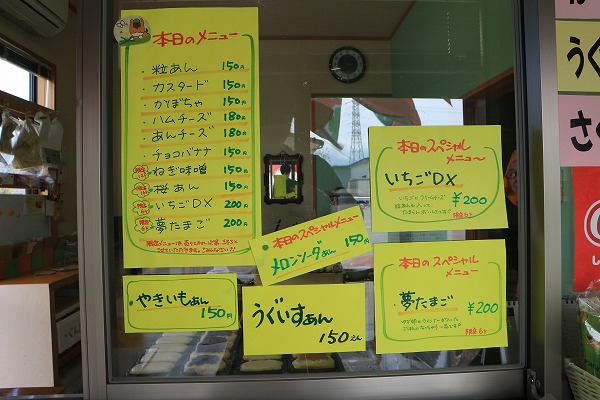 本日のメニュー
・粒あん 150円
・カスタード 150円
・かぼちゃ 150円
・ハムチーズ 180円
・あんチーズ 180円
・チョコバナナ 150円
・ねぎ味噌 150円
・桜あん 150円
・いちごDX 200円
・夢たまご 200円
本日のスペシャルメニュー
メロンソーダあん 150円
本日のスペシャル
メニュー
いちごDX
¥200
限定6コ
本日のスペシャル
メニュー
夢たまご ¥200
限定6コ
・やきいもあん
150円
うぐいすあん
150えん
うぐ
さく